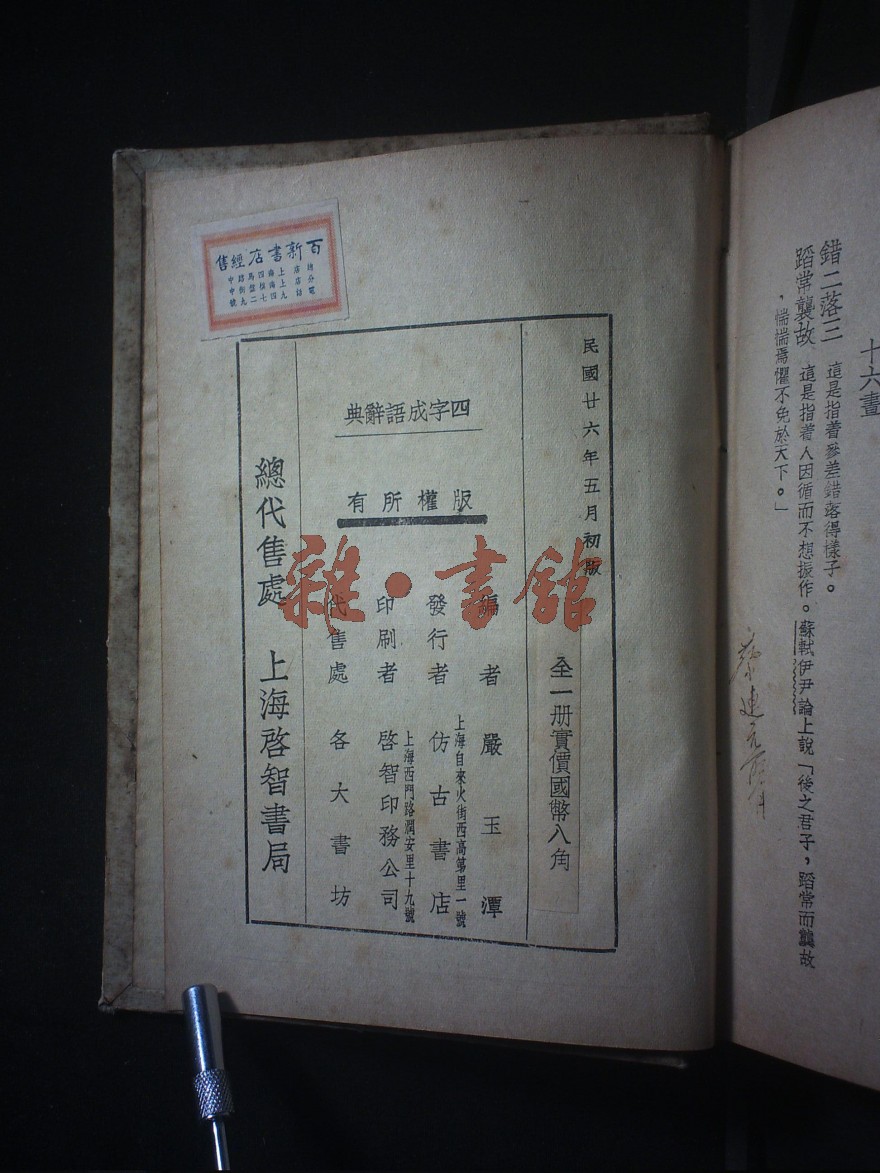 十六畫
錯二落三 這是指着參差錯落得樣子。
蹈常襲故 這是指着人因循而不想振作。蘇軾伊尹論上說「後之君子,蹈常而襲故
,惴惴焉懼不免於天下。」
百新書店經售
總店上海四馬路中
分店上海棋盤街中
電話九四七二九號
民國廿六年五月初版
全一册實價國幣八角
四字成語辭典
版權所有
編者 嚴玉潭
上海自來火街西高第里一號
發行者 仿古書店
上海西門路潤安里十九號
印刷者 啓智印務公司
代售處 各大書坊
總代售處 上海啓智書局
雜·書館